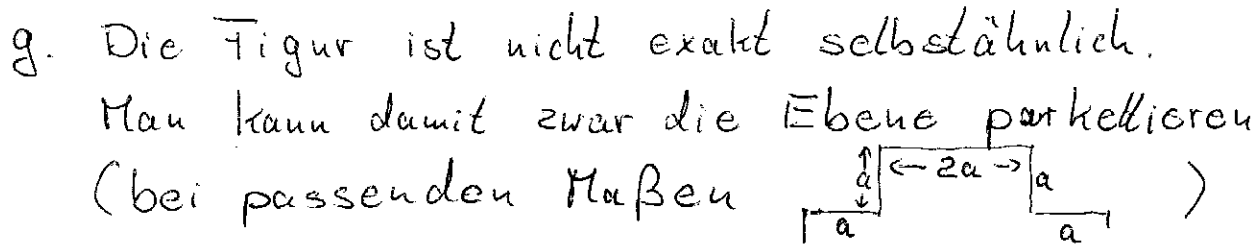 g. Die Figur ist nicht exakt selbstähnlich.
Man kann damit zwar die Ebene parkettieren
(bei passenden Maßen a ← 2a → a )
a a